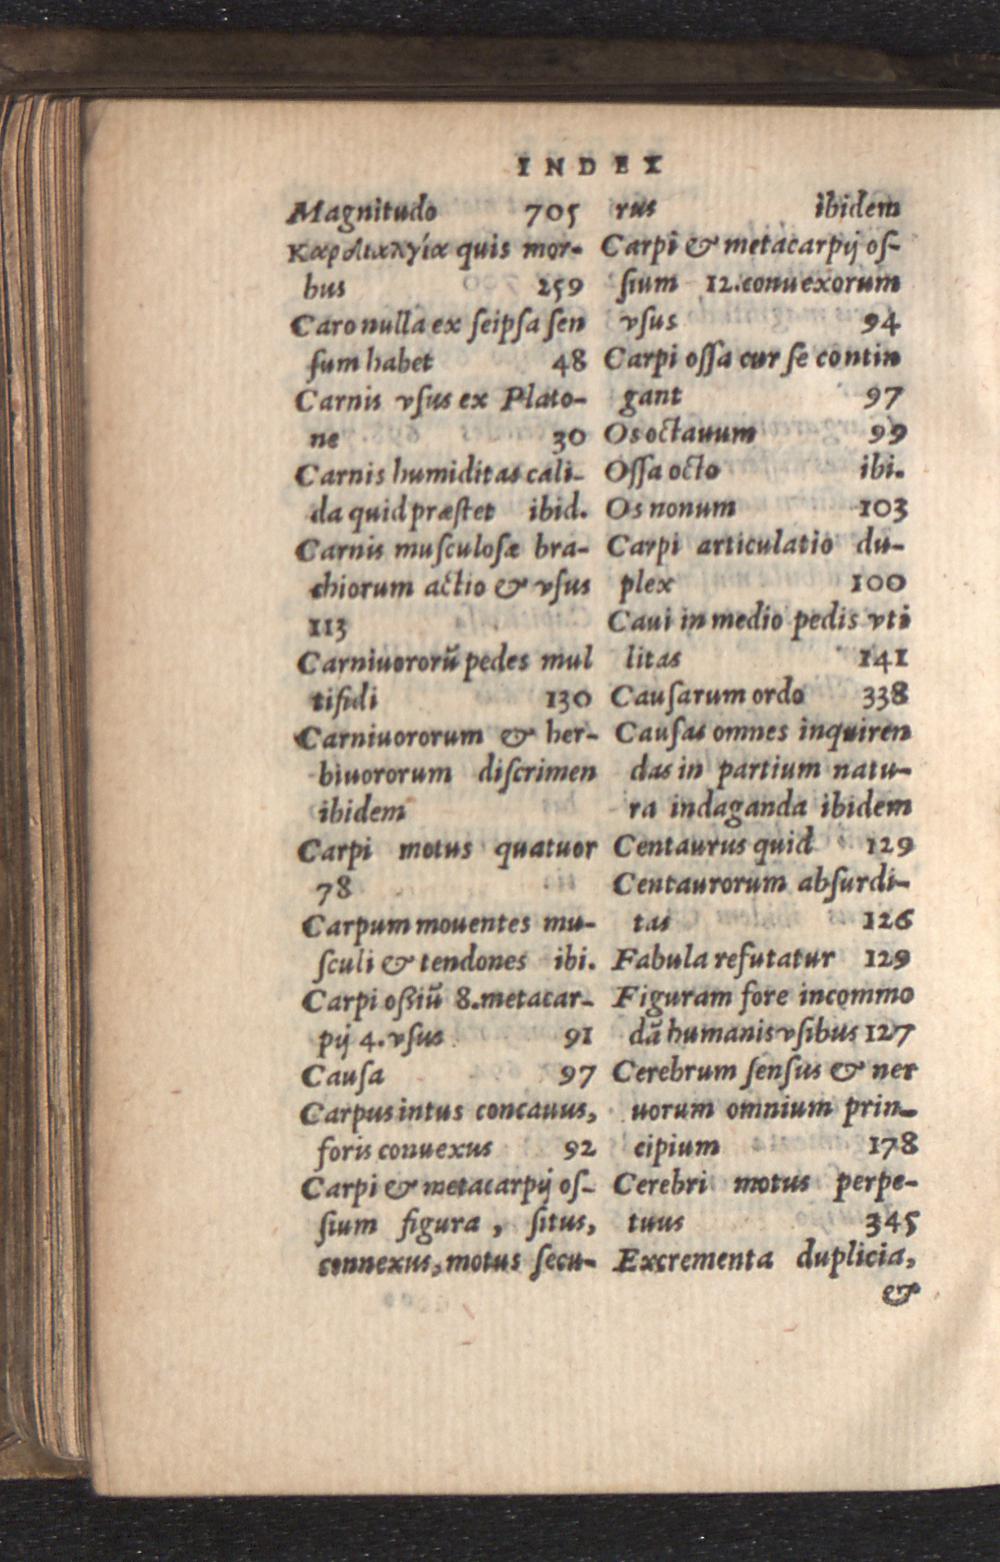 INDEX
Magnitudo 705
καρδιαλγία quis mor-
bus 259
Caro nulla ex seipsa sen
sum habet 48
Carnis vsus ex Plato-
ne 30
Carnis humiditas cali-
da quid præstet ibid.
Carnis musculosæ bra-
chiorum actio & vsus
113
Carniuororū pedes mul
tifidi 130
Carniuororum & her-
biuororum discrimen
ibidem
Carpi motus quatuor
78
Carpum mouentes mu-
sculi & tendones ibi.
Carpi oßiū 8.metacar-
pij 4. vsus 91
Causa 97
Carpus intus concauus,
foris conuexus 92
Carpi & metacarpij os-
sium figura, situs,
connexus, motus secu-
rus ibidem
Carpi & metacarpij os-
sium 12.conuexorum
vsus 94
Carpi ossa cur se contin
gant 97
Os octauum 99
Ossa octo ibi.
Os nonum 103
Carpi articulatio du-
plex 100
Caui in medio pedis vti
litas 141
Causarum ordo 338
Causas omnes inquiren
das in partium natu-
ra indaganda ibidem
Centaurus quid 129
Centaurorum absurdi-
tas 126
Fabula refutatur 129
Figuram fore incommo
dā humanis vsibus 127
Cerebrum sensus & ner
uorum omnium prin-
cipium 178
Cerebri motus perpe-
tuus 345
Excrementa duplicia,
&